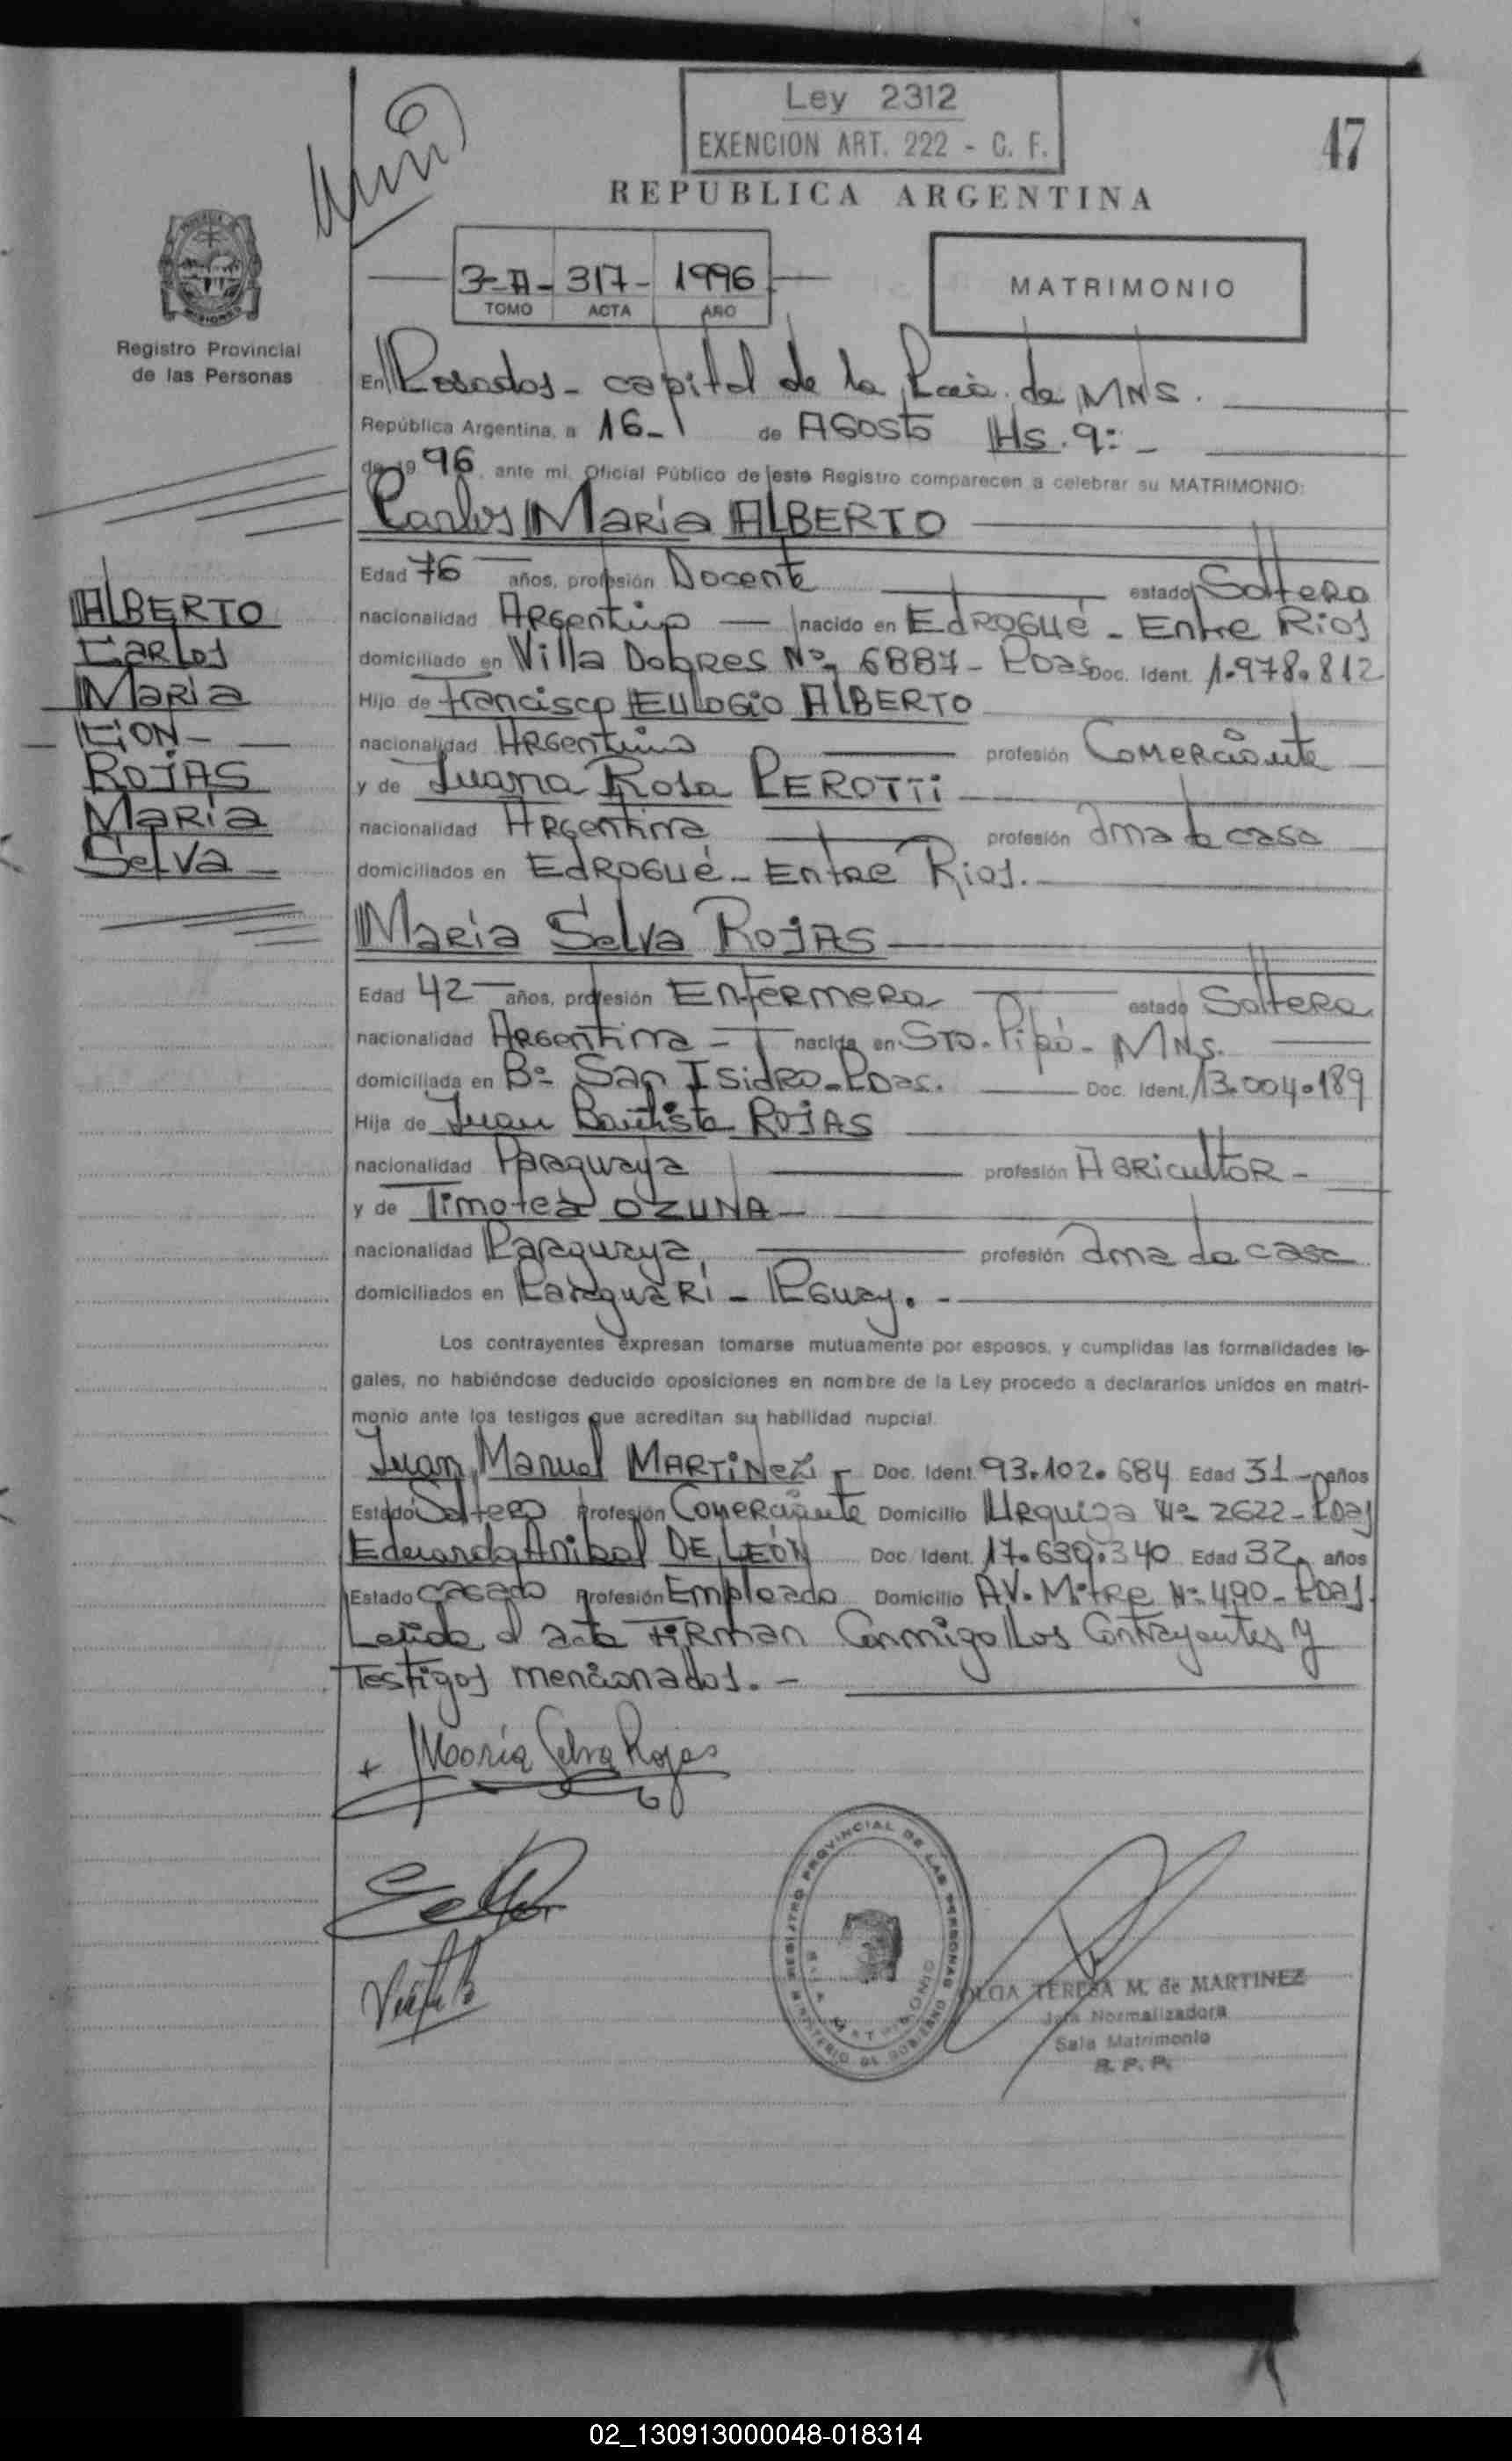 Ley 2312
EXENCION ART. 222 - C. F.
47
REPUBLICA ARGENTINA
3-A- 317- 1996
TOMO ACTA AÑO
MATRIMONIO
Registro Provincial
de las Personas
En Posadas - capital de la Pcia. de MNS.
República Argentina, a 16- de AGOSTO Hs. 9: -
de 19 96, ante mi, Oficial Público de este Registro comparecen a celebrar su MATRIMONIO:
Carlos MARIA ALBERTO
Edad 76 años, profesión Docente estado Soltero
nacionalidad Argentino nacido en EdROGUé - Entre Rios
domiciliado en Villa Dolores Nº 6887 - Pdas Doc. Ident. 1.978.812
Hijo de Francisco EULOGIO ALBERTO
nacionalidad Argentino profesión Comerciante
y de Juana Rosa PEROTTI
nacionalidad Argentina profesión Ama de casa
domiciliados en EdROGUé - Entre Rios.
ALBERTO
Carlos
MARIA
CON -
ROJAS
MARIA
Selva
MARIA Selva ROJAS
Edad 42 años, profesión Enfermera estado Soltera
nacionalidad Argentina - nacida en Sto. Pipó - MNS.
domiciliada en Bº San Isidro - Pdas. Doc. Ident. 13.004.189
Hija de Juan Bautista ROJAS
nacionalidad Paraguaya profesión Agricultor -
y de Timotea OZUNA -
nacionalidad Paraguaya profesión Ama de casa
domiciliados en Paraguarí - Pguay. -
Los contrayentes expresan tomarse mutuamente por esposos, y cumplidas las formalidades le-
gales, no habiéndose deducido oposiciones en nombre de la Ley procedo a declararlos unidos en matri-
monio ante los testigos que acreditan su habilidad nupcial.
Juan Manuel MARTINEZ - Doc. Ident. 93.102.684 Edad 31 - años
Estado Soltero Profesión Comerciante Domicilio Urquiza Nº 2622 - Pdas
Eduardo Anibal DE LEÓN Doc. Ident. 17.630.340 Edad 32 años
Estado casado Profesión Empleado Domicilio AV. Mitre Nº 490 - Pdas.
Leída el acta firman Conmigo los Contrayentes y
Testigos mencionados. -
+ María Selva Rojas
REGISTRO PROVINCIAL DE LAS PERSONAS
MINISTERIO DE GOBIERNO
SALA MATRIMONIO
OLGA TERESA M. de MARTINEZ
Jefa Normalizadora
Sala Matrimonio
R. P. P.
02_130913000048-018314